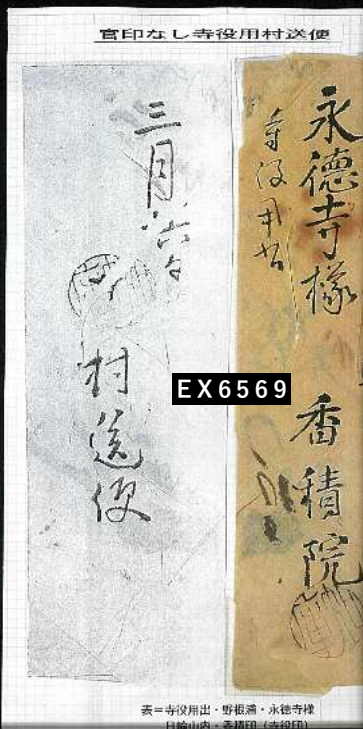 官印なし寺役用村送便
永徳寺様
寺役用出
香積院
三月六日
村送便
EX6569
表=寺役用出・野根浦・永徳寺様
日輪山内・香積印(寺役印)